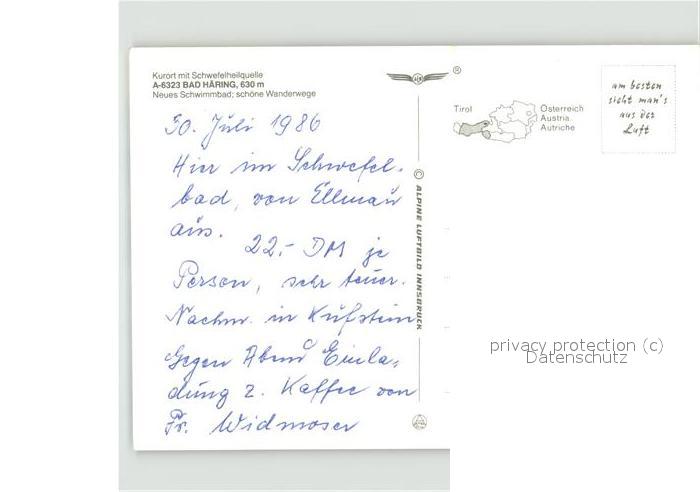 Kurort mit Schwefelheilquelle
A-6323 BAD HÄRING, 630 m
Neues Schwimmbad; schöne Wanderwege
30. Juli 1986
Hier im Schwefel-
bad, von Ellmau
aus.
22,- DM je
Person, sehr teuer.
Nachm. in Kufstein
Gegen Abend Einla-
dung z. Kaffee von
Fr. Widmoser
®
© ALPINE LUFTBILD INNSBRUCK
Tirol
Österreich
Austria
Autriche
am besten
sieht man's
aus der
Luft
privacy protection (c)
Datenschutz